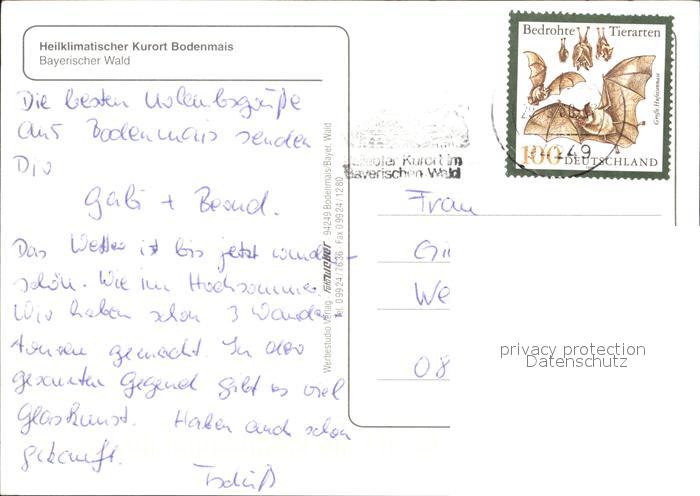 Heilklimatischer Kurort Bodenmais
Bayerischer Wald
Die besten Urlaubsgrüße
aus Bodenmais senden
Dir
Gabi + Bernd.
Das Wetter ist bis jetzt wunder-
schön. Wie im Hochsommer.
Wir haben schon 3 Wander-
touren gemacht. In der
gesamten Gegend gibt es viel
Glaskunst. Haben auch schon
gekauft.
Tschüß
Werbestudio Verlag 94249 Bodenmais/Bayer. Wald
Tel. 09924/7636 Fax 09924/1280
Bedrohte Tierarten
Große Hufeisennase
100 DEUTSCHLAND
Kurort im
Bayerischen Wald
Frau
Gi
We
08
privacy protection
Datenschutz